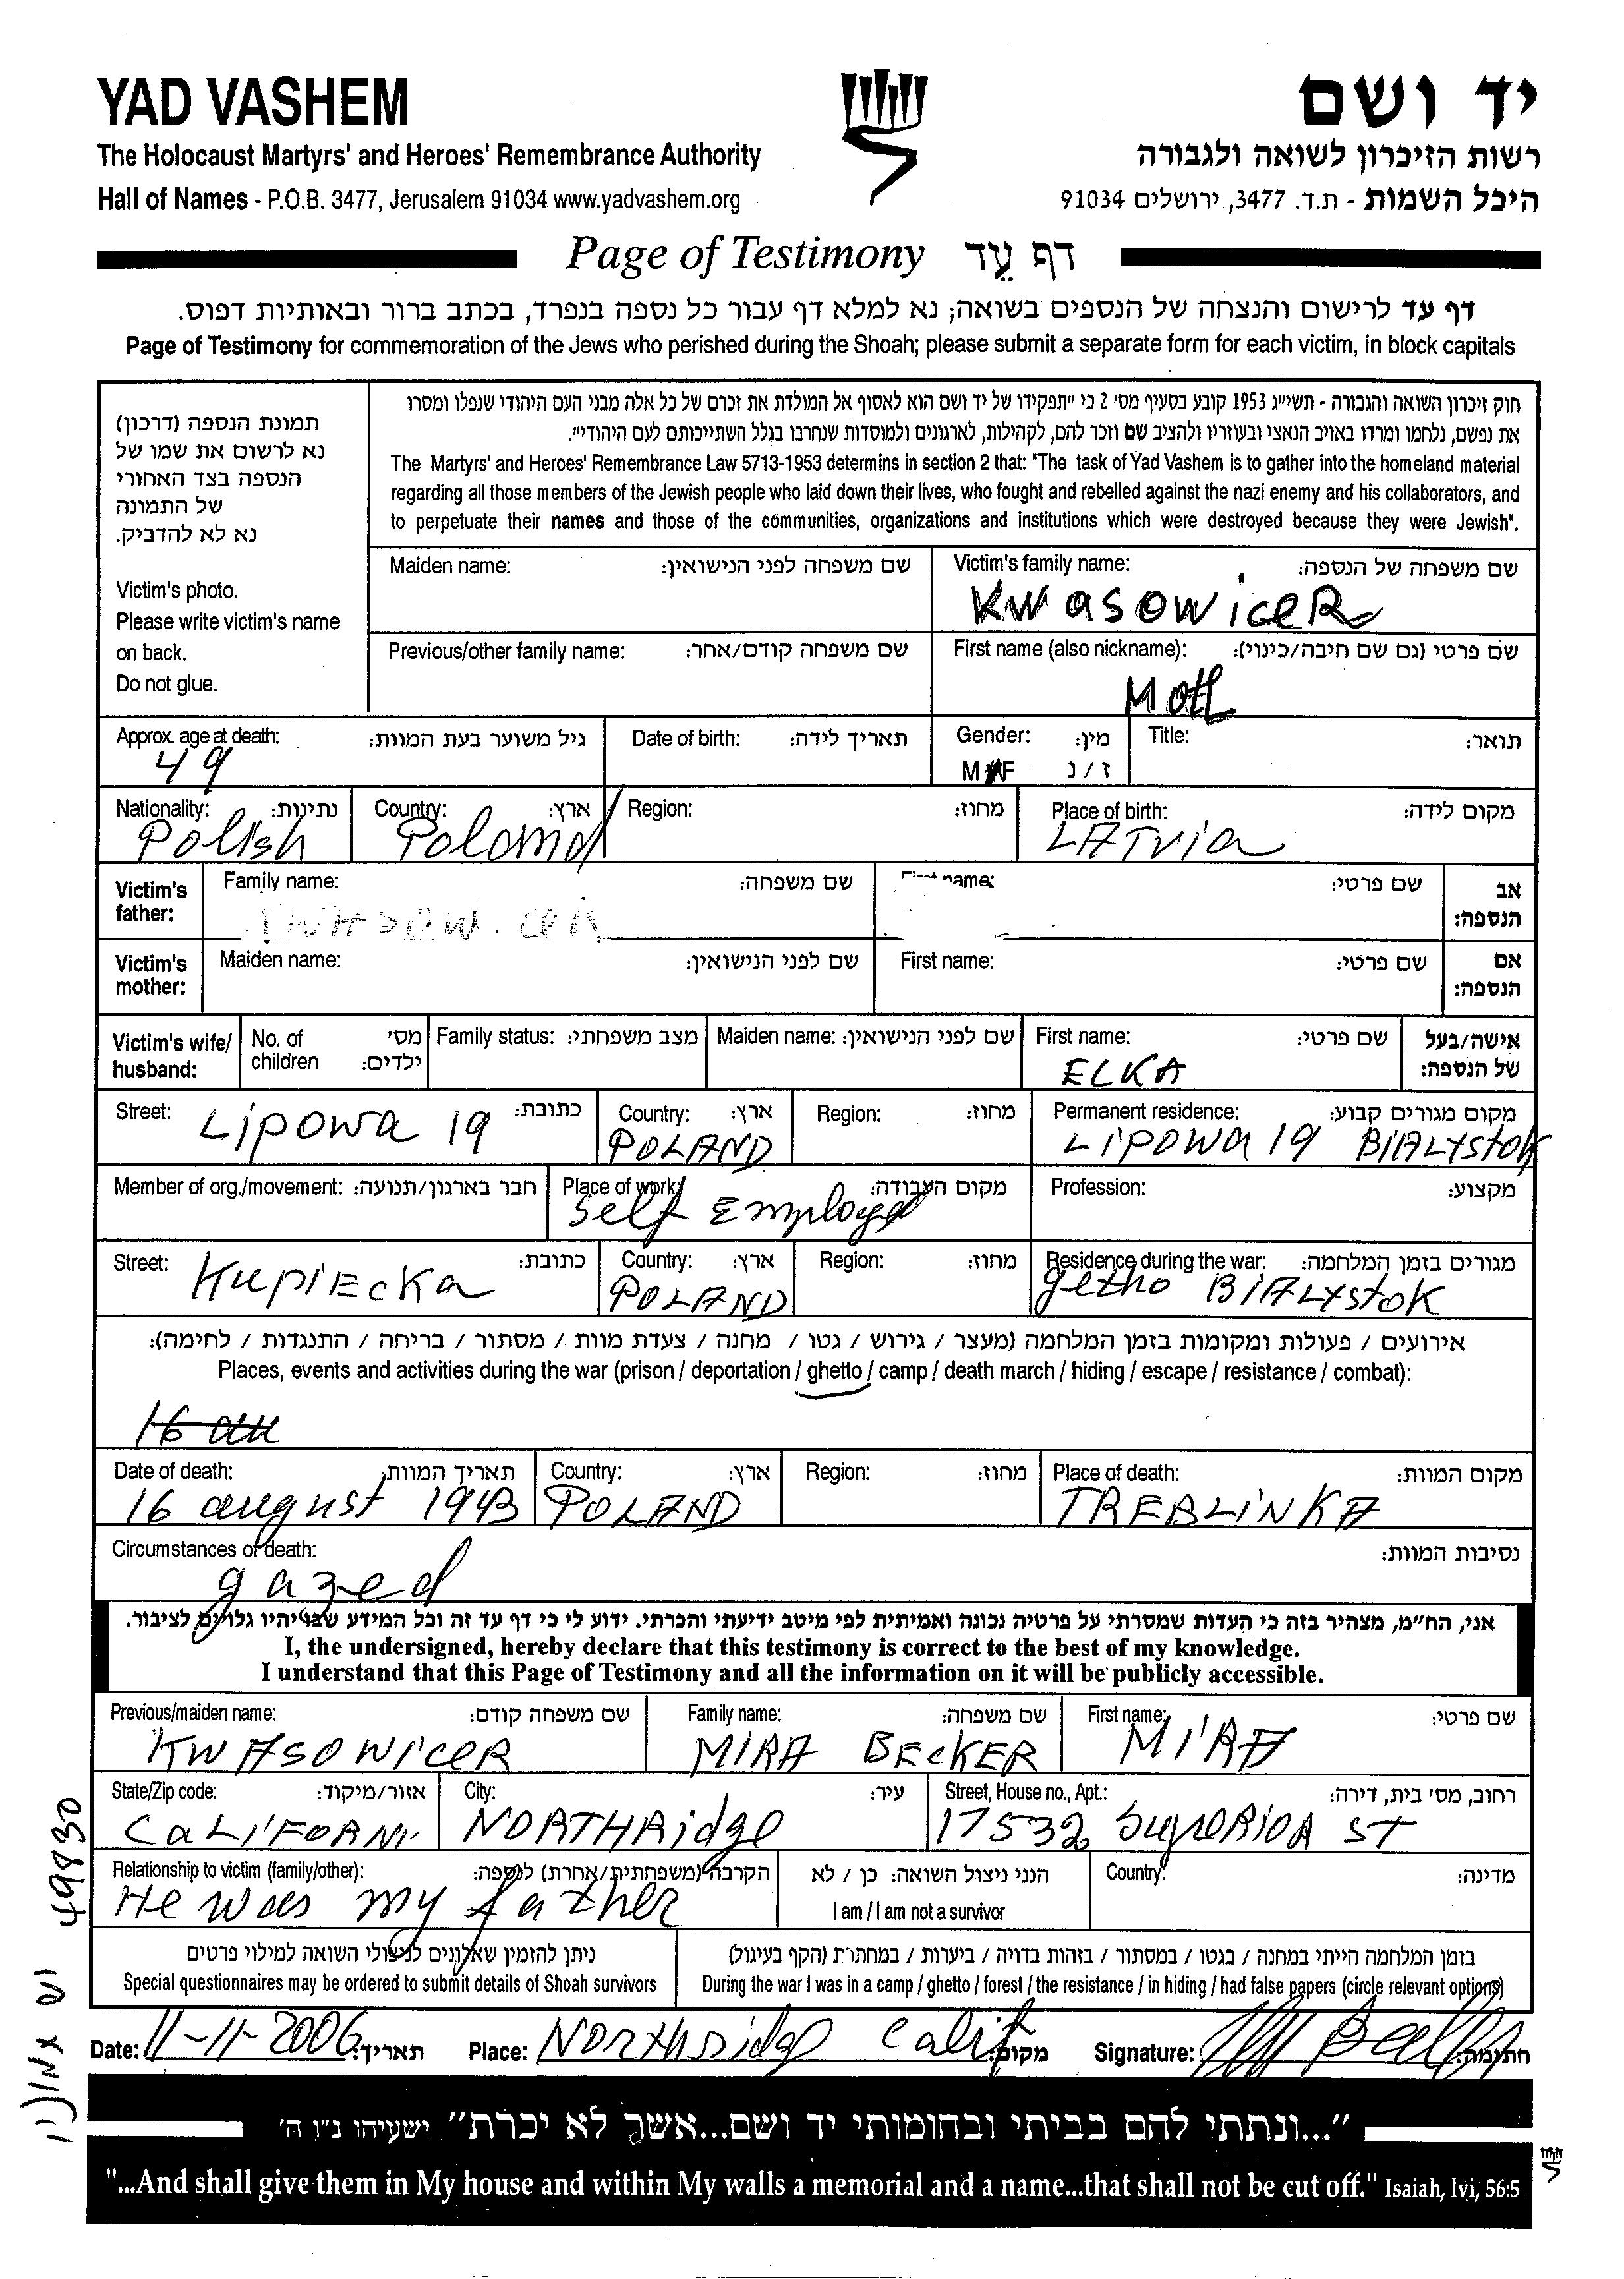 YAD VASHEM
יד ושם
The Holocaust Martyrs' and Heroes' Remembrance Authority
רשות הזיכרון לשואה ולגבורה
Hall of Names - P.O.B. 3477, Jerusalem 91034 www.yadvashem.org
היכל השמות - ת.ד. 3477, ירושלים 91034
Page of Testimony דף עֵד
דף עד לרישום והנצחה של הנספים בשואה; נא למלא דף עבור כל נספה בנפרד, בכתב ברור ובאותיות דפוס.
Page of Testimony for commemoration of the Jews who perished during the Shoah; please submit a separate form for each victim, in block capitals
תמונת הנספה (דרכון)
נא לרשום את שמו של
הנספה בצד האחורי
של התמונה
נא לא להדביק.
Victim's photo.
Please write victim's name
on back.
Do not glue.
חוק זיכרון השואה והגבורה - תשי״ג 1953 קובע בסעיף מס׳ 2 כי ״תפקידו של יד ושם הוא לאסוף אל המולדת את זכרם של כל אלה מבני העם היהודי שנפלו ומסרו
את נפשם, נלחמו ומרדו באויב הנאצי ובעוזריו ולהציב שם וזכר להם, לקהילות, לארגונים ולמוסדות שנחרבו בגלל השתייכותם לעם היהודי״.
The Martyrs' and Heroes' Remembrance Law 5713-1953 determins in section 2 that: "The task of Yad Vashem is to gather into the homeland material
regarding all those members of the Jewish people who laid down their lives, who fought and rebelled against the nazi enemy and his collaborators, and
to perpetuate their names and those of the communities, organizations and institutions which were destroyed because they were Jewish".
Maiden name: שם משפחה לפני הנישואין:
Victim's family name: שם משפחה של הנספה:
KWASOWICER
Previous/other family name: שם משפחה קודם/אחר:
First name (also nickname): שם פרטי (גם שם חיבה/כינוי):
MOTL
Approx. age at death: גיל משוער בעת המוות:
49
Date of birth: תאריך לידה:
Gender: מין:
M/F ז/נ
Title: תואר:
Nationality: נתינות:
Polish
Country: ארץ:
Poland
Region: מחוז:
Place of birth: מקום לידה:
LATvia
Victim's father:
Family name: שם משפחה:
First name: שם פרטי:
אב הנספה:
Victim's mother:
Maiden name: שם לפני הנישואין:
First name: שם פרטי:
אם הנספה:
Victim's wife/husband:
No. of children מס׳ ילדים:
Family status: מצב משפחתי:
Maiden name: שם לפני הנישואין:
First name: שם פרטי:
ELKA
אישה/בעל של הנספה:
Street: כתובת:
Lipowa 19
Country: ארץ:
POLAND
Region: מחוז:
Permanent residence: מקום מגורים קבוע:
Lipowa 19 BIALYSTOK
Member of org./movement: חבר בארגון/תנועה:
Place of work: מקום העבודה:
Self Employed
Profession: מקצוע:
Street: כתובת:
KupiEcKa
Country: ארץ:
POLAND
Region: מחוז:
Residence during the war: מגורים בזמן המלחמה:
getho BIALYSTOK
אירועים / פעולות ומקומות בזמן המלחמה (מעצר / גירוש / גטו / מחנה / צעדת מוות / מסתור / בריחה / התנגדות / לחימה):
Places, events and activities during the war (prison / deportation / ghetto / camp / death march / hiding / escape / resistance / combat):
16 au
Date of death: תאריך המוות:
16 august 1943
Country: ארץ:
POLAND
Region: מחוז:
Place of death: מקום המוות:
TREBLINKA
Circumstances of death: נסיבות המוות:
gazed
אני, הח״מ, מצהיר בזה כי העדות שמסרתי על פרטיה נכונה ואמיתית לפי מיטב ידיעתי והכרתי. ידוע לי כי דף עד זה וכל המידע שבו יהיו גלויים לציבור.
I, the undersigned, hereby declare that this testimony is correct to the best of my knowledge.
I understand that this Page of Testimony and all the information on it will be publicly accessible.
Previous/maiden name: שם משפחה קודם:
KWASOWICER
Family name: שם משפחה:
MIRA BECKER
First name: שם פרטי:
MIRA
State/Zip code: אזור/מיקוד:
CALIFORNI
City: עיר:
NORTHRidge
Street, House no., Apt.: רחוב, מס׳ בית, דירה:
17532 SupERIOR ST
Relationship to victim (family/other): הקרבה (משפחתית/אחרת) לנספה:
He was my father
הנני ניצול השואה: כן / לא
I am / I am not a survivor
Country: מדינה:
ניתן להזמין שאלונים לניצולי השואה למילוי פרטים
Special questionnaires may be ordered to submit details of Shoah survivors
בזמן המלחמה הייתי במחנה / בגטו / במסתור / בזהות בדויה / ביערות / במחתרת (הקף בעיגול)
During the war I was in a camp / ghetto / forest / the resistance / in hiding / had false papers (circle relevant options)
Date: 11-11-2006 תאריך:
Place: Northridge Calif מקום:
Signature: חתימה:
"...ונתתי להם בביתי ובחומותי יד ושם...אשר לא יכרת" ישעיהו נ"ו ה'
"...And shall give them in My house and within My walls a memorial and a name...that shall not be cut off." Isaiah, lvi, 56:5
49830